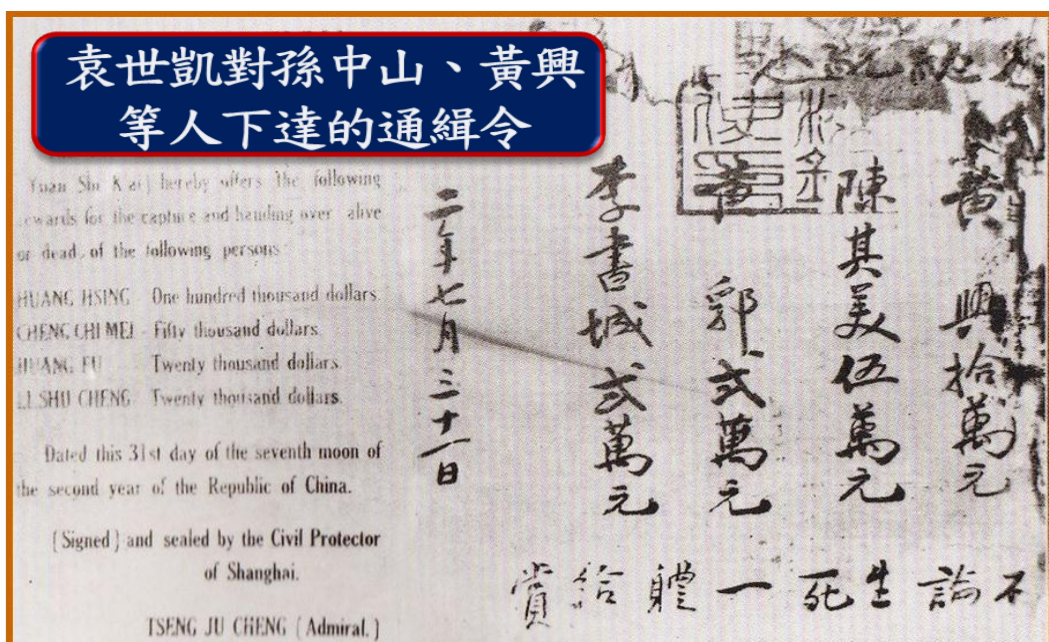 袁世凱對孫中山、黃興
等人下達的通緝令
Yuan Shi Kai] hereby offers the following
rewards for the capture and handing over alive
or dead, of the following persons:
HUANG HSING One hundred thousand dollars.
CHENG CHI MEI - Fifty thousand dollars.
HUANG FU Twenty thousand dollars.
LI SHU CHENG Twenty thousand dollars.
Dated this 31st day of the seventh moon of
the second year of the Republic of China.
[Signed] and sealed by the Civil Protector
of Shanghai.
TSENG JU CHENG (Admiral.)
黃興拾萬元
陳其美伍萬元
黃郛弍萬元
李書城弍萬元
不論生死一體給賞
二年七月三十一日